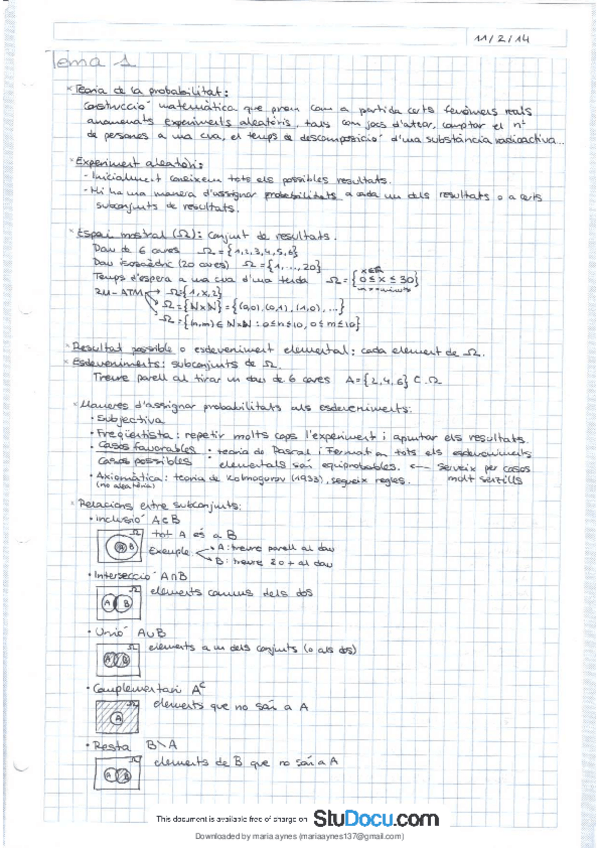 11/2/14
Tema 1
* Teoria de la probabilitat:
construcció matemàtica que prem com a partida certs fenòmens reals
anomenats experiments aleatoris, tals com jocs d'atzar, comptar el nº
de persones a una cua, el temps de descomposició d'una substància radioactiva...
* Experiment aleatori:
- Inicialment coneixem tots els possibles resultats.
- Hi ha una manera d'assignar probabilitats a cada un dels resultats o a certs
subconjunts de resultats.
* Espai mostral (Ω): conjunt de resultats.
Dau de 6 cares Ω = {1,2,3,4,5,6}
Dau icosaèdric (20 cares) Ω = {1, ..., 20}
Temps d'espera a una cua d'una tenda Ω = { 0 ≤ x ≤ 30 }
x∈R
Ω = {1, x, 2}
Ω = {N×N} = {(0,0), (0,1), (1,0), ...}
Ω = {(n,m) ∈ N×N : 0≤n≤10, 0≤m≤10}
* Resultat possible o esdeveniment elemental: cada element de Ω.
* Esdeveniments: subconjunts de Ω.
Treure parell al tirar un dau de 6 cares A = {2,4,6} ⊂ Ω
* Maneres d'assignar probabilitats als esdeveniments:
• Subjectiva
• Freqüentista: repetir molts cops l'experiment i apuntar els resultats.
• Casos favorables : teoria de Pascal i Fermat on tots els esdeveniments
Casos possibles elementals són equiprobables. ← Serveix per casos
molt senzills
• Axiomàtica: teoria de Kolmogorov (1933), segueix regles.
(no aleatòria)
* Relacions entre subconjunts:
• Inclusió A⊂B
Ω A B tot A és a B
Exemple A: treure parell al dau
B: treure 2 o + al dau
• Intersecció A∩B
Ω A B elements comuns dels dos
• Unió A∪B
Ω A B elements a un dels conjunts (o als dos)
• Complementari Aᶜ
Ω A elements que no són a A
• Resta B\A
Ω A B elements de B que no són a A
This document is available free of charge on StuDocu.com
Downloaded by maria aynes (mariaaynes137@gmail.com)